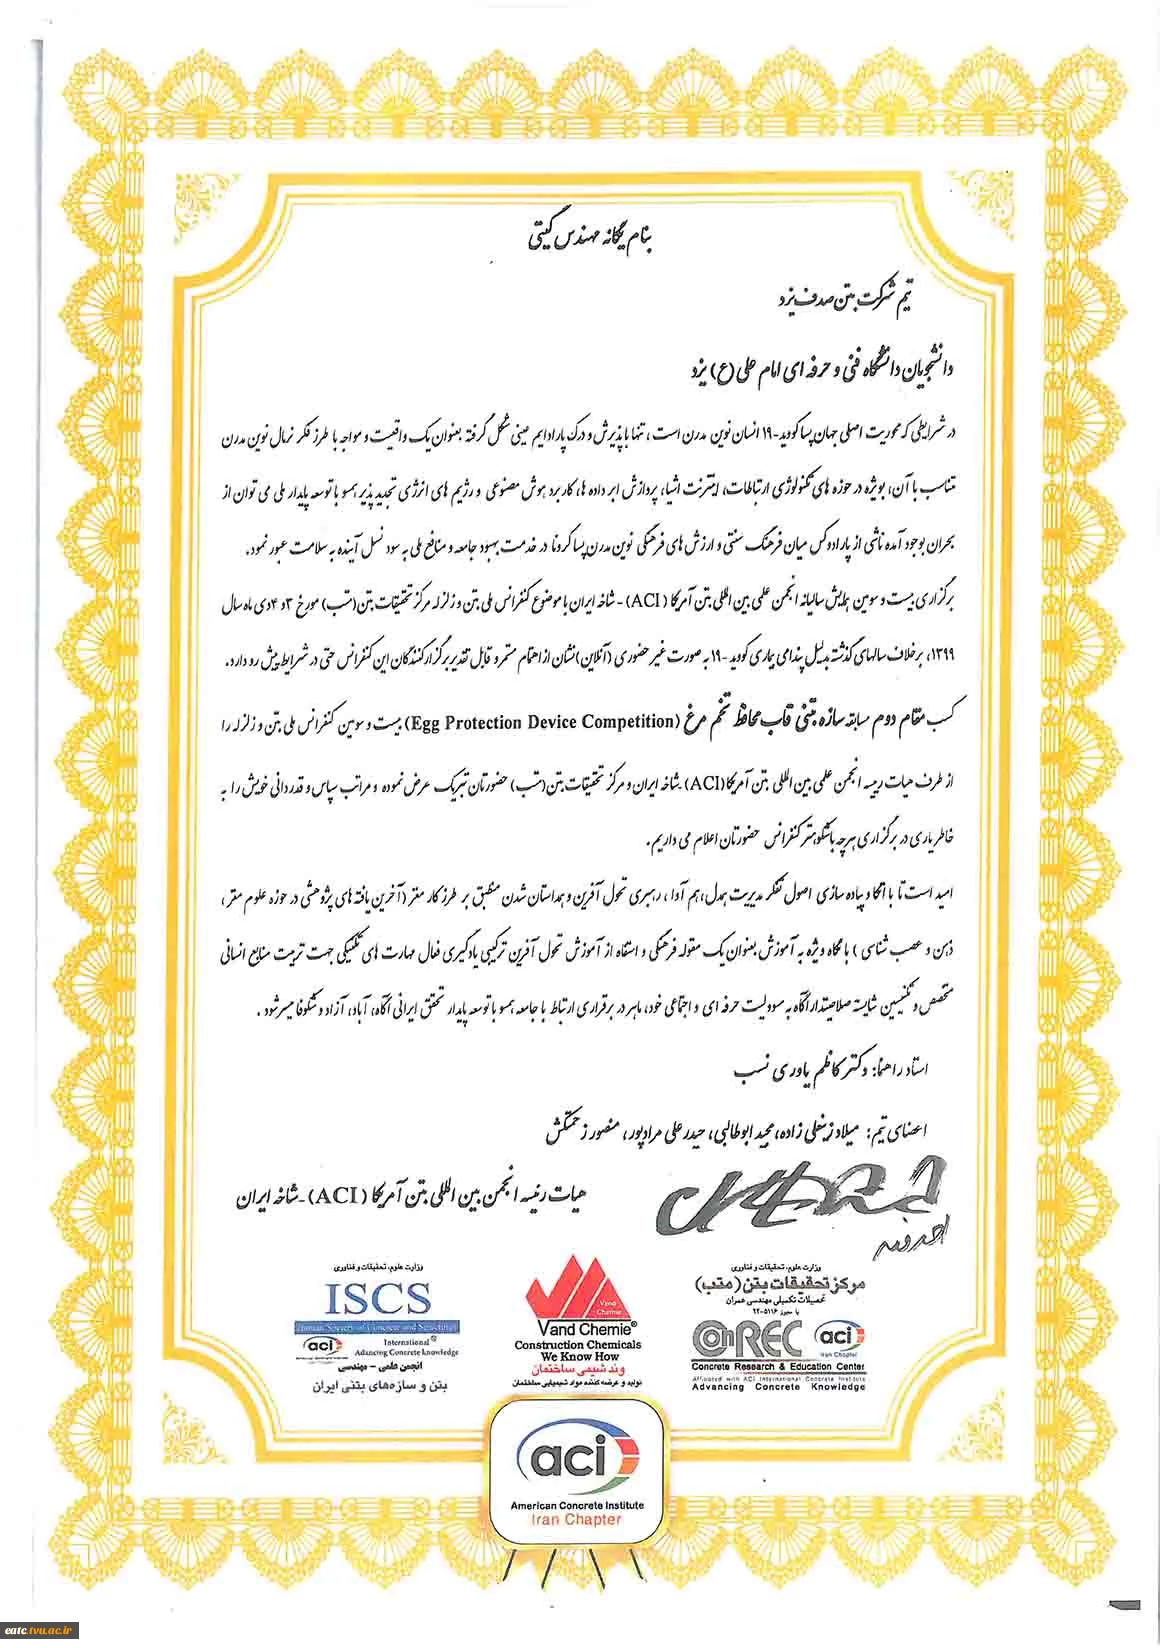 بنام یگانه مهندس گیتی
تیم شرکت بتن صدف یزد
دانشجویان دانشگاه فنی و حرفه ای امام علی (ع) یزد
در شرایطی که محوریت اصلی جهان پساکووید-۱۹ انسان نوین مدرن است، تنها با پذیرش و درک پارادایم عینی شکل گرفته بعنوان یک واقعیت و مواجه با طرز فکر نرمال نوین مدرن
متناسب با آن، بویژه در حوزه های تکنولوژی ارتباطات، اینترنت اشیا، پردازش ابر داده ها، کاربرد هوش مصنوعی و رژیم های انرژی تجدید پذیر همسو با توسعه پایدار ملی می توان از
بحران بوجود آمده ناشی از پارادوکس میان فرهنگ سنتی و ارزش های فرهنگی نوین مدرن پساکرونا در خدمت بهبود جامعه و منافع ملی به سود نسل آینده به سلامت عبور نمود.
برگزاری بیست و سومین همایش سالیانه انجمن علمی بین المللی بتن آمریکا (ACI) - شاخه ایران با موضوع کنفرانس ملی بتن و زلزله مرکز تحقیقات بتن(متب) مورخ ۳ و ۴ دی ماه سال
۱۳۹۹، برخلاف سالهای گذشته بدلیل پندامی بیماری کووید -۱۹ به صورت غیر حضوری (آنلاین) نشان از اهتمام مستمر و قابل تقدیر برگزارکنندگان این کنفرانس حتی در شرایط پیش رو دارد.
کسب مقام دوم مسابقه سازه بتنی قاب محافظ تخم مرغ (Egg Protection Device Competition) بیست و سومین کنفرانس ملی بتن و زلزله را
از طرف هیات رییسه انجمن علمی بین المللی بتن آمریکا(ACI)-شاخه ایران و مرکز تحقیقات بتن(متب) حضورتان تبریک عرض نموده و مراتب سپاس و قدردانی خویش را به
خاطر یاری در برگزاری هرچه باشکوهتر کنفرانس حضورتان اعلام می داریم.
امید است تا با اتکا و پیاده سازی اصول تفکر مدیریت همدل، هم آوا، رهبری تحول آفرین و همداستان شدن منطبق بر طرز کار مغز (آخرین یافته های پژوهشی در حوزه علوم مغز،
ذهن و عصب شناسی) با نگاه ویژه به آموزش بعنوان یک مقوله فرهنگی و استفاه از آموزش تحول آفرین ترکیبی یادگیری فعال مهارت های تکنیکی جهت تربیت منابع انسانی
متخصص و تکنیسین شایسته صلاحیتدار آگاه به مسوولیت حرفه ای و اجتماعی خود، ماهر در برقراری ارتباط با جامعه همسو با توسعه پایدار تحقق ایرانی آگاه، آباد، آزاد و شکوفا میسر شود.
استاد راهنما: دکتر کاظم یاوری نسب
اعضای تیم: میلاد زینعلی زاده، مجید ابوطالبی، حیدر علی مرادپور، منصور زحمتکش
هیات رئیسه انجمن بین المللی بتن آمریکا (ACI)-شاخه ایران
وزارت علوم، تحقیقات و فناوری
ISCS
Iranian Society of Concrete and Structures
aci International
Advancing Concrete knowledge
انجمن علمی - مهندسی
بتن و سازه‌های بتنی ایران
Vand Chemie
Vand Chemie®
Construction Chemicals
We Know How
وند شیمی ساختمان
تولید و عرضه کننده مواد شیمیایی ساختمان
وزارت علوم، تحقیقات و فناوری
مرکز تحقیقات بتن (متب)
تحصیلات تکمیلی مهندسی عمران
با مجوز ۵۱۱۶-۲۲
ConREC aci
Iran Chapter
Concrete Research & Education Center
Affiliated with ACI International Concrete Institute
Advancing Concrete Knowledge
aci
American Concrete Institute
Iran Chapter
eatc.tvu.ac.ir